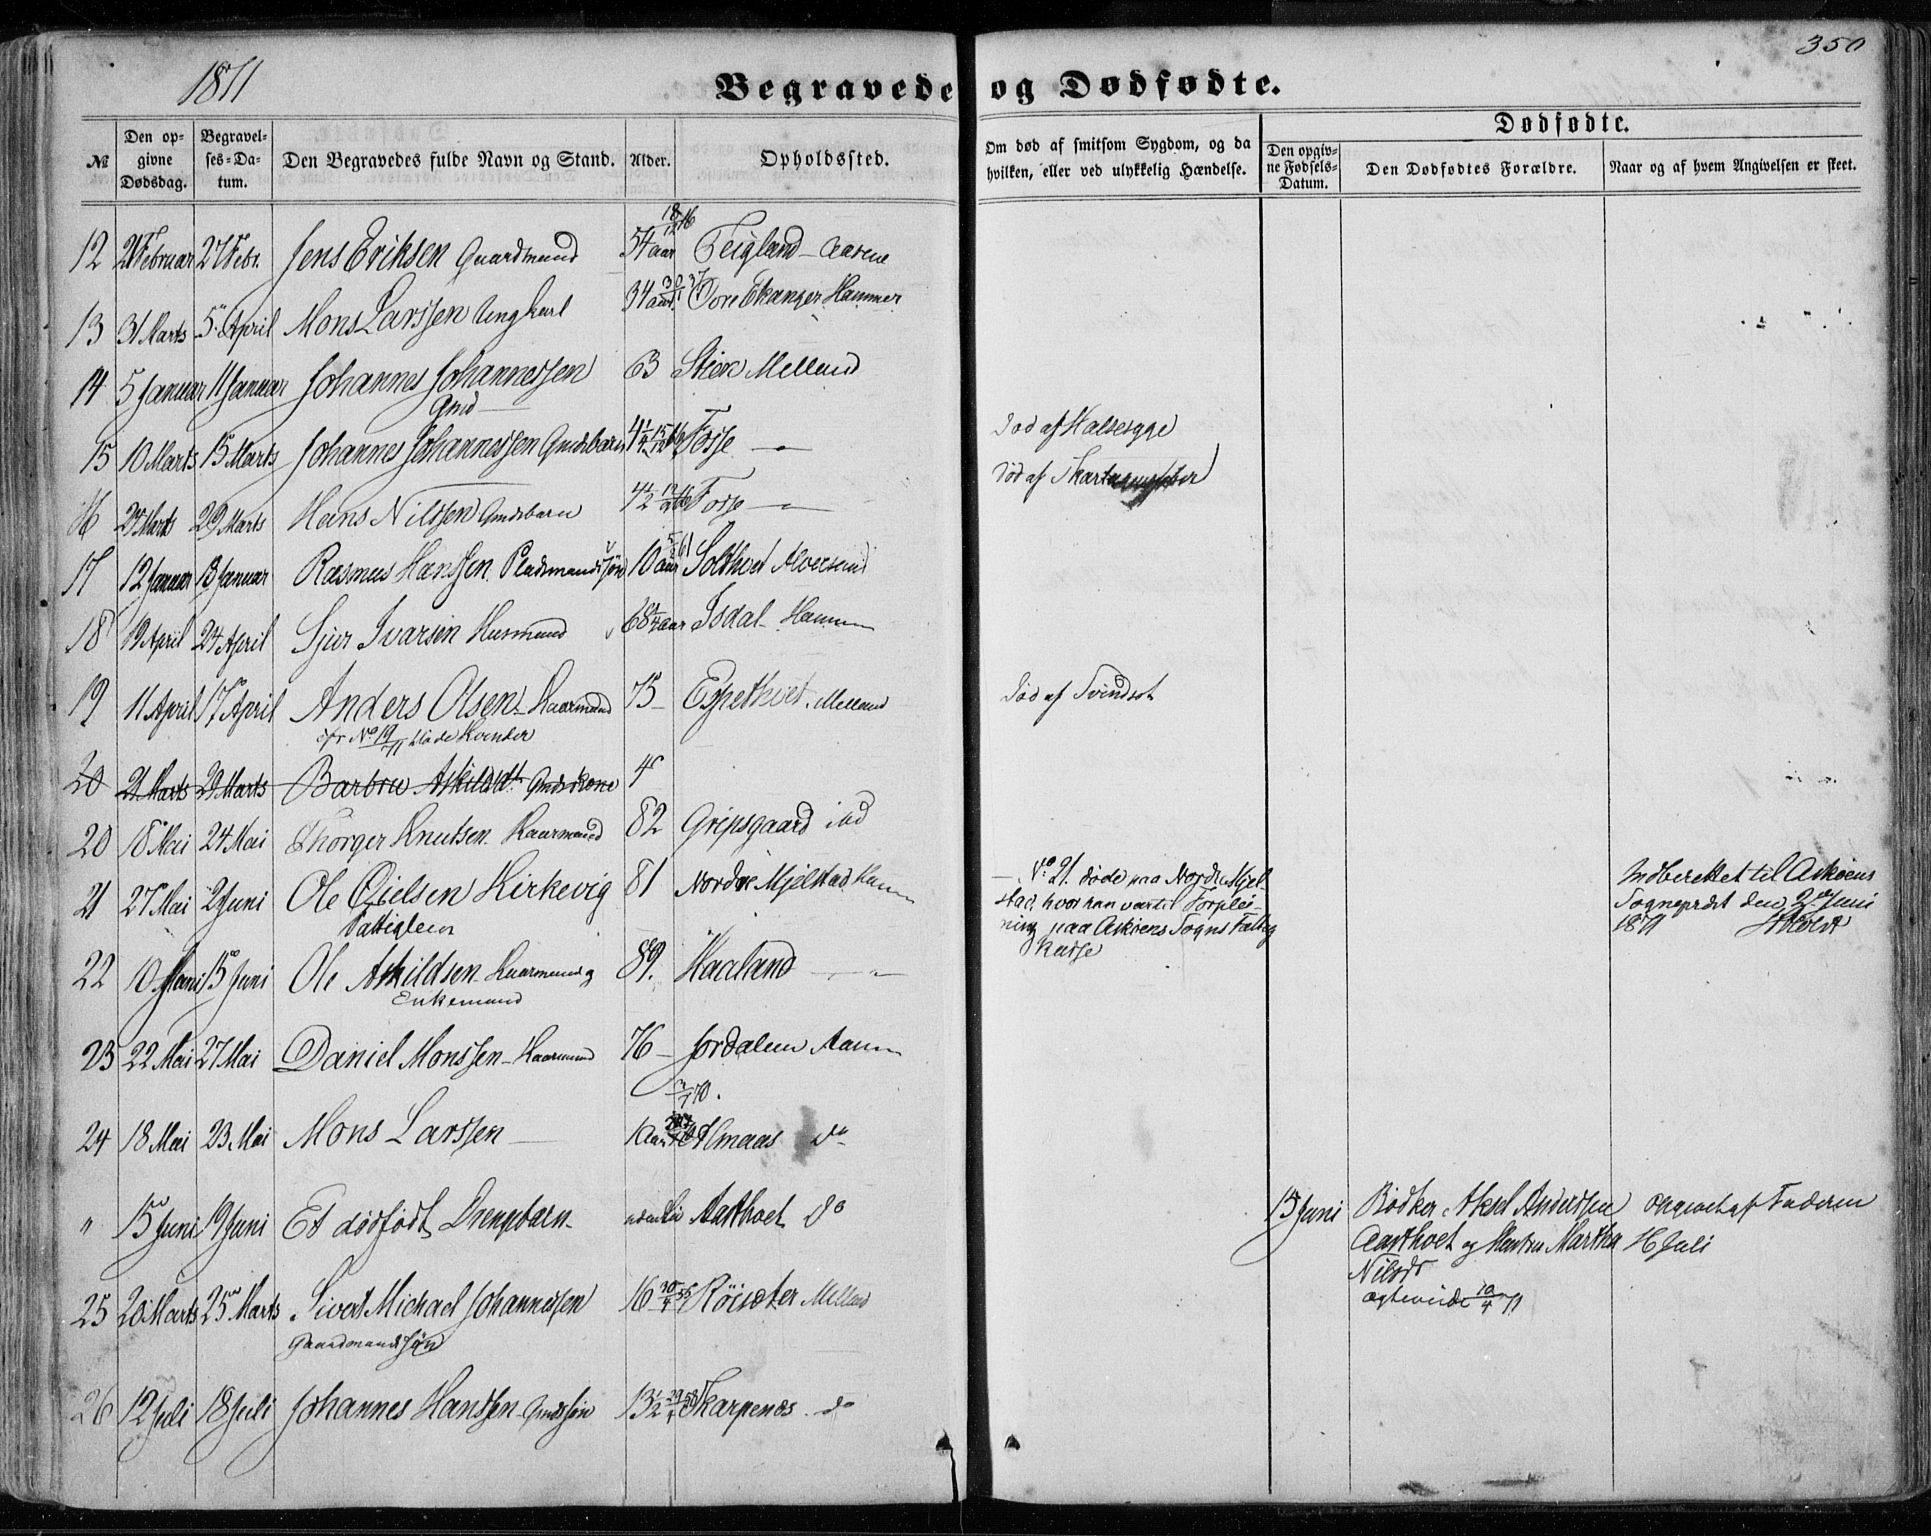 1871
350
Begravede og Dødfødte.
№
Den op-
givne
Dødsdag.
Begravel-
ses-Da-
tum.
Den Begravedes fulde Navn og Stand.
Alder.
Opholdssted.
Om død af smitsom Sygdom, og da
hvilken, eller ved ulykkelig Hændelse.
Dødfødte.
Den opgiv-
ne Fødsels-
Datum.
Den Dødfødtes Forældre.
Naar og af hvem Angivelsen er skeet.
12 21 Februar 27 Febr. Jens Eriksen Gaardmand 54 aar Feigland
13 31 Marts 5 April Mons Larssen Ungkarl 34 aar Tore Ekanger Hammer
14 5 Januar 11 Januar Johannes Johannessen 63 Meland
Gmd
15 10 Marts 15 Marts Johannes Johannessen Gmdsbarn Fosse Død af Halsesyge
16 24 Marts 29 Marts Hans Nilssen Gmdsbarn 4½ Fosse Død af
17 12 Januar 13 Januar Rasmus Hanssen Pladsmandssøn 10 aar Solthvet Alversund
18 19 April 24 April Sjur Ivarsen Husmand 68 aar Isdal Hamm
19 11 April 17 April Anders Olsen Kaarmand 75 Espethvet Melland Død af Svindsot
cfr No 19/71 døde Kvinder
20 21 Marts 29 Marts Barbru Askildsdt Gmdskone 4
20 18 Mai 24 Mai Thorger Knutsen Kaarmand 82 Gripsgaard ibd
21 27 Mai 2 Juni Ole Nielsen Kirkevig 81 Nordre Mjelstad Ham
Fattiglem
No 21. døde paa Nordre Mjel-
stad, hvor han var til Forplei-
ning paa Askøens Sogns Fattig
kasse
Indberettet til Askøens
Sognepræst den 2den Juni
1871
22 10 Juni 15 Juni Ole Askildsen Kaarmand og 89. Haaland
Enkemand
23 22 Mai 27 Mai Daniel Monssen Kaarmand 76 Jordalen Ham
24 18 Mai 23 Mai Mons Larssen 1 Aar Almaas do
" 15 Juni 19 Juni Et dødfødt Drengebarn Aasthvet do
15 Juni Bødker Aksel Anderssen
Aasthvet og Hustru Martha
Nilsdr
ægteviede 10/4 71
opgivet af Faderen
16 Juli
25 20 Marts 25 Marts Sivert Michael Johannessen 16 Røisæter Melland
Gaardmandssøn
26 12 Juli 18 Juli Johannes Hanssen Gmdssøn 13½ Skarpenes do